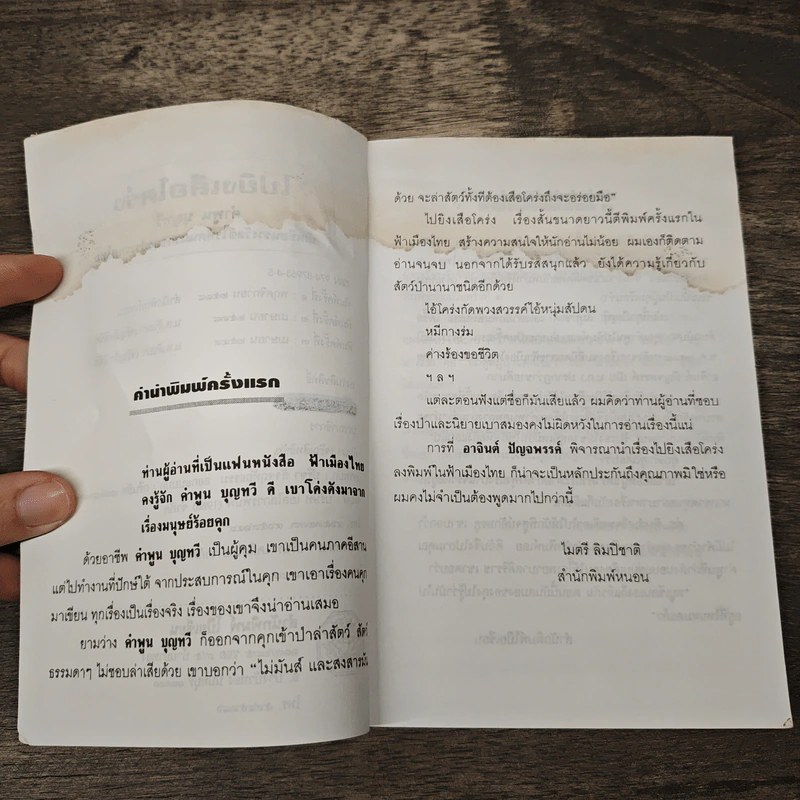 คำนำพิมพ์ครั้งแรก
ท่านผู้อ่านที่เป็นแฟนหนังสือ ฟ้าเมืองไทย
คงรู้จัก คำพูน บุญทวี ดี เขาโด่งดังมาจาก
เรื่องมนุษย์ร้อยคุก
ด้วยอาชีพ คำพูน บุญทวี เป็นผู้คุม เขาเป็นคนภาคอีสาน
แต่ไปทำงานที่ปักษ์ใต้ จากประสบการณ์ในคุก เขาเอาเรื่องคนคุก
มาเขียน ทุกเรื่องเป็นเรื่องจริง เรื่องของเขาจึงน่าอ่านเสมอ
ยามว่าง คำพูน บุญทวี ก็ออกจากคุกเข้าป่าล่าสัตว์ สัตว์
ธรรมดาๆ ไม่ชอบล่าเสียด้วย เขาบอกว่า “ไม่มันส์ และสงสารมัน
ด้วย จะล่าสัตว์ทั้งทีต้องเสือโคร่งถึงจะอร่อยมือ”
ไปยิงเสือโคร่ง เรื่องสั้นขนาดยาวนี้ตีพิมพ์ครั้งแรกใน
ฟ้าเมืองไทย สร้างความสนใจให้นักอ่านไม่น้อย ผมเองก็ติดตาม
อ่านจนจบ นอกจากได้รับรสสนุกแล้ว ยังได้ความรู้เกี่ยวกับ
สัตว์ป่านานาชนิดอีกด้วย
ไอ้โคร่งกัดพวงสวรรค์ไอ้หนุ่มสัปดน
หมีกางร่ม
ค่างร้องขอชีวิต
ฯ ล ฯ
แต่ละตอนฟังแต่ชื่อก็มันเสียแล้ว ผมคิดว่าท่านผู้อ่านที่ชอบ
เรื่องป่าและนิยายเบาสมองคงไม่ผิดหวังในการอ่านเรื่องนี้แน่
การที่ อาจินต์ ปัญจพรรค์ พิจารณานำเรื่องไปยิงเสือโคร่ง
ลงพิมพ์ในฟ้าเมืองไทย ก็น่าจะเป็นหลักประกันถึงคุณภาพมิใช่หรือ
ผมคงไม่จำเป็นต้องพูดมากไปกว่านี้
ไมตรี ลิมปิชาติ
สำนักพิมพ์หนอน